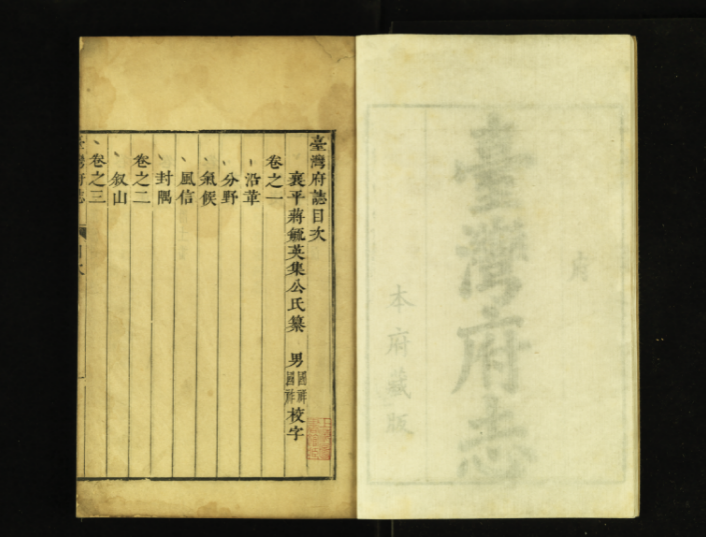 臺灣府志
本府藏版
臺灣府誌目次
襄平蔣毓英集公氏纂 男國祥國祚校字
卷之一
沿革
分野
氣候
風信
封隅
卷之二
叙山
卷之三
臺灣府誌 目次